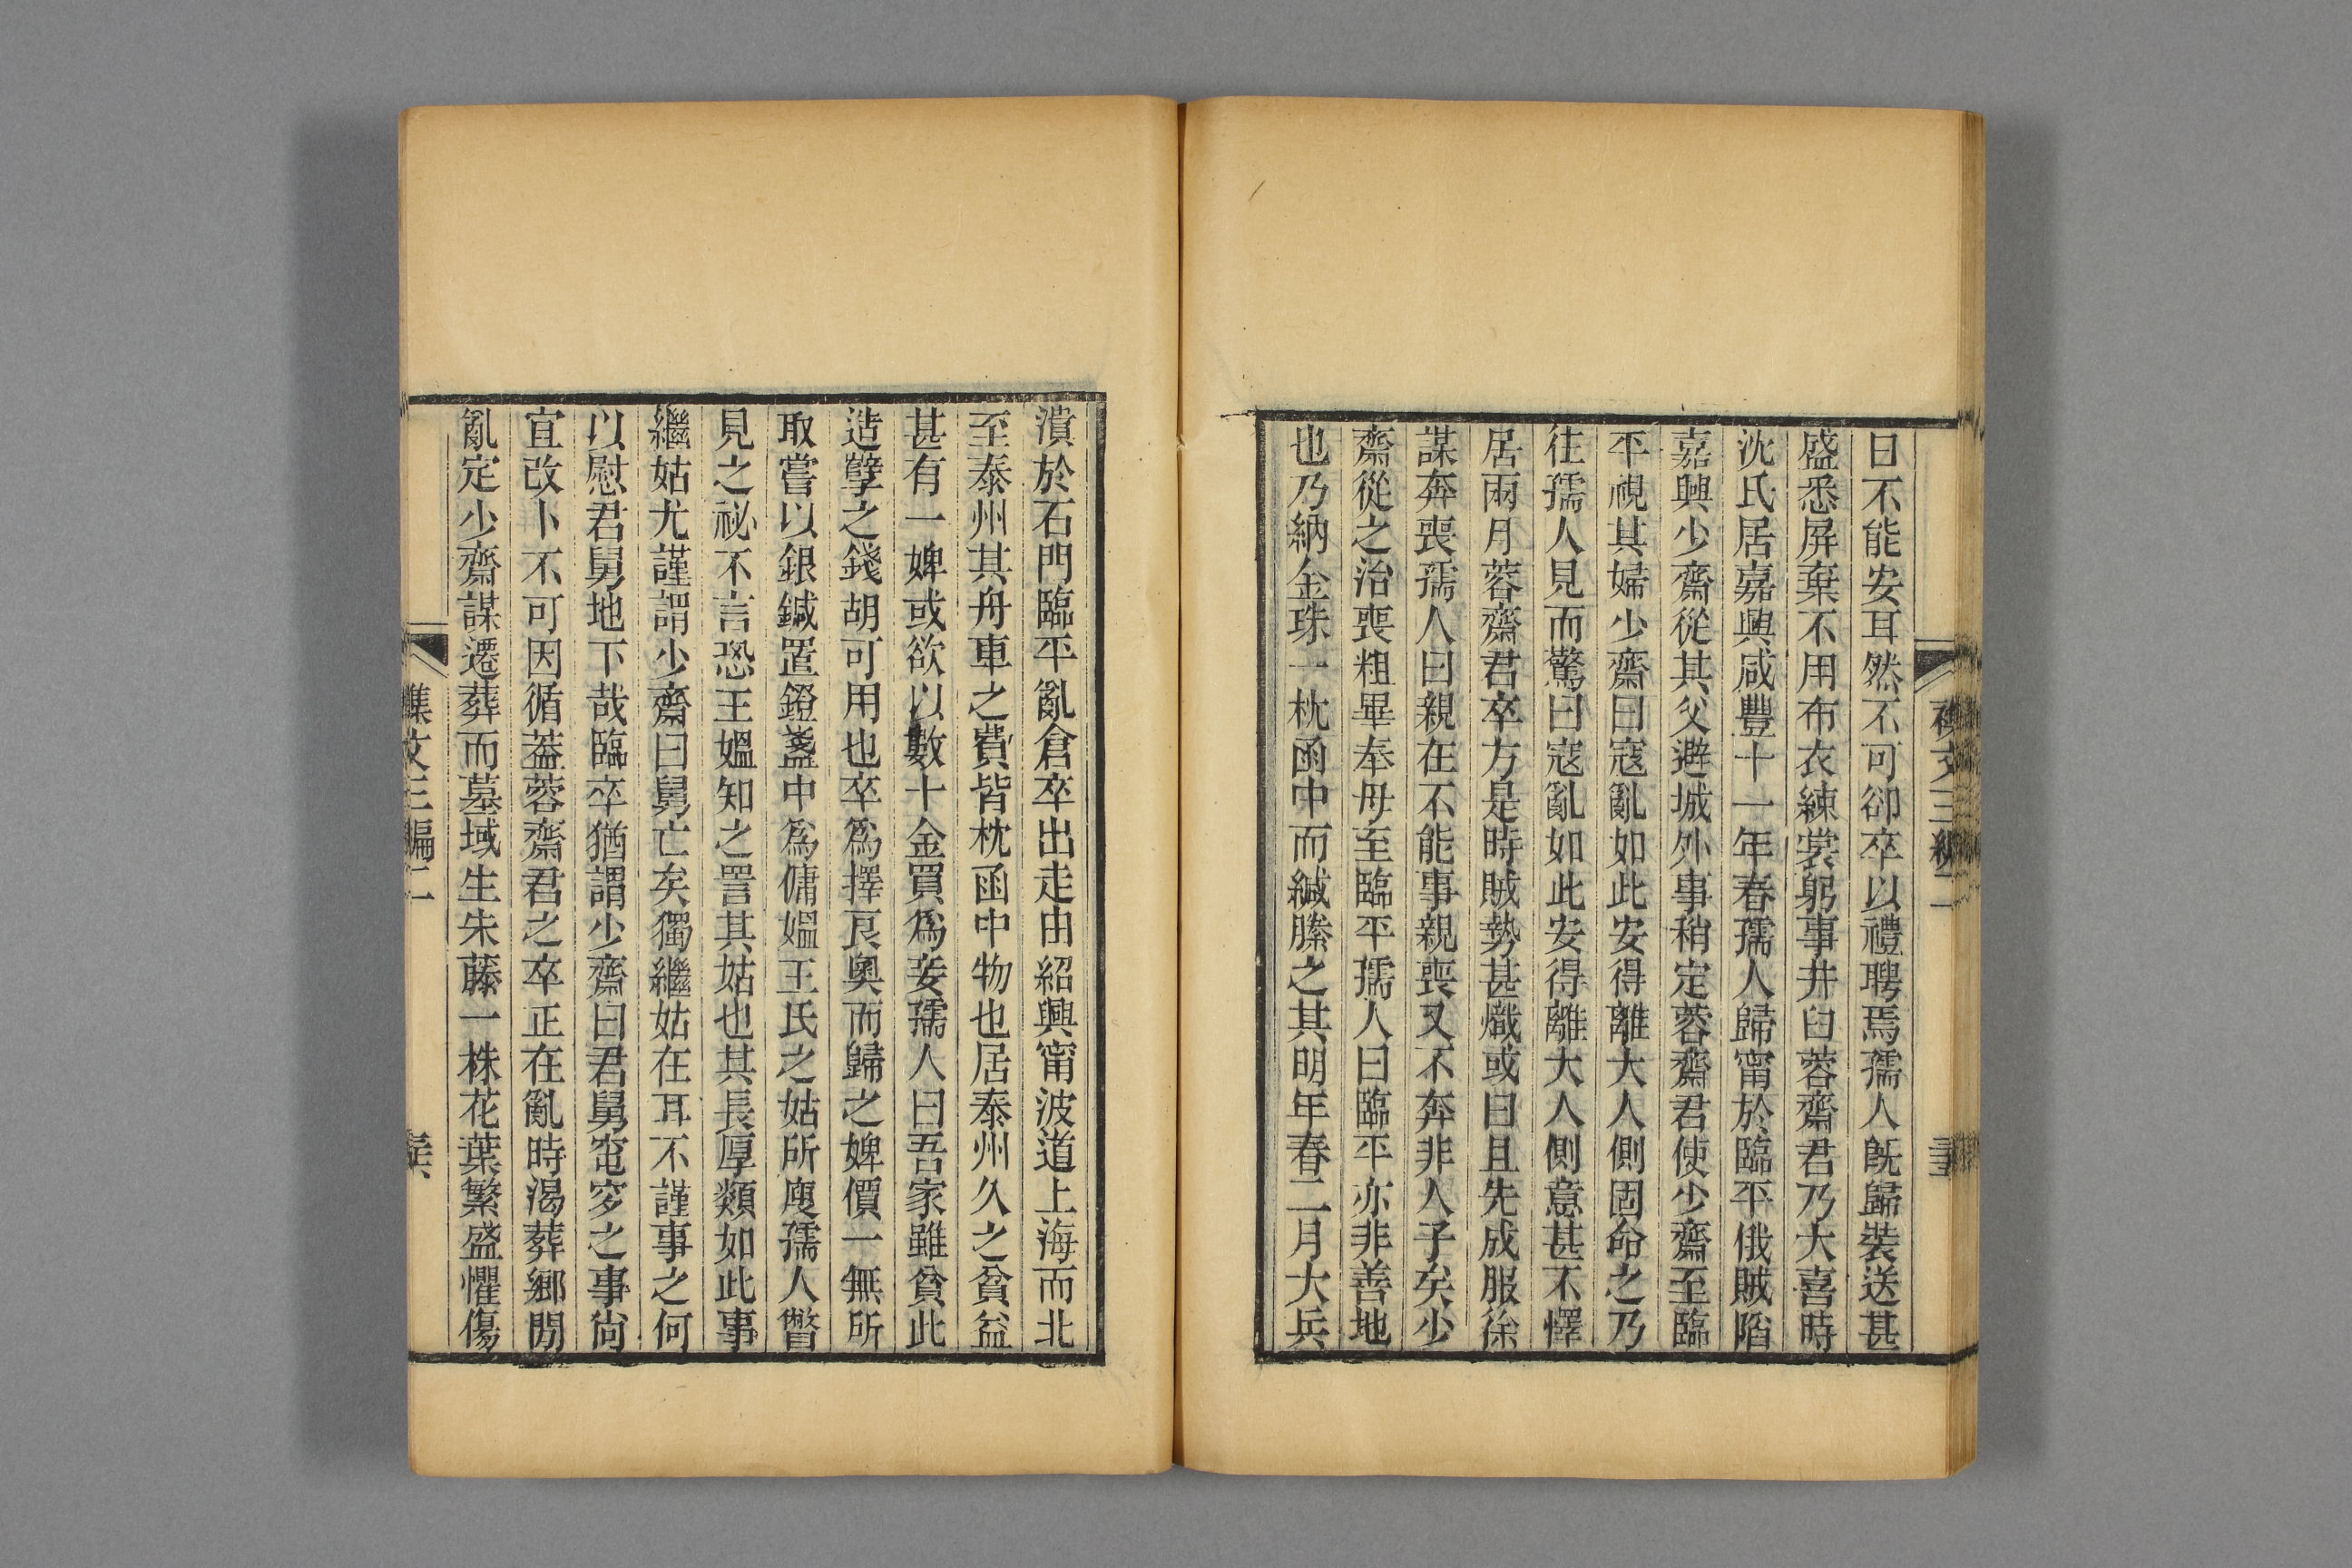 日不能安耳然不可卻卒以禮聘焉孺人旣歸裝送甚
盛悉屏棄不用布衣練裳躬事井臼蓉齋君乃大喜時
沈氏居嘉興咸豐十一年春孺人歸甯於臨平俄賊陷
嘉興少齋從其父避城外事稍定蓉齋君使少齋至臨
平視其婦少齋曰寇亂如此安得離大人側固命之乃
往孺人見而驚曰寇亂如此安得離大人側意甚不懌
居兩月蓉齋君卒方是時賊勢甚熾或曰且先成服徐
謀奔喪孺人曰親在不能事親喪又不奔非人子矣少
齋從之治喪粗畢奉母至臨平孺人曰臨平亦非善地
也乃納金珠一枕函中而緘縢之其明年春二月大兵
潰於石門臨平亂倉卒出走由紹興甯波道上海而北
至泰州其舟車之費皆枕函中物也居泰州久之貧益
甚有一婢或欲以數十金買爲妾孺人曰吾家雖貧此
造孽之錢胡可用也卒爲擇良奥而歸之婢價一無所
取嘗以銀鍼置鐙盞中爲傭媼王氏之姑所廋孺人瞥
見之祕不言恐王媼知之詈其姑也其長厚類如此事
繼姑尤謹謂少齋曰舅亡矣獨繼姑在耳不謹事之何
以慰君舅地下哉臨卒猶謂少齋曰君舅窀穸之事尙
宜改卜不可因循葢蓉齋君之卒正在亂時渴葬鄉閒
亂定少齋謀遷葬而墓域生朱藤一株花葉繁盛懼傷
襍文三編二